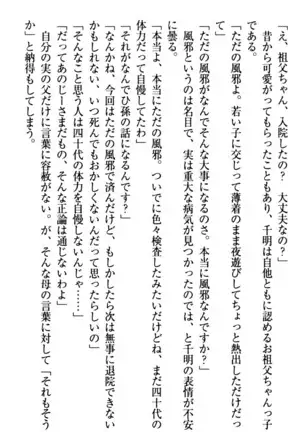 「え、祖父ちゃん、入院したの？　大丈夫なの？」
昔から可愛がってもらったこともあり、千明は自他ともに認めるお祖父ちゃんっ子
である。
「ただの風邪よ。若い子に交じって薄着のまま夜遊びしてちょっと熱出しただけだっ
て」
「ただの風邪がなんでそんな大事になるのさ。本当に風邪なんですか？」
風邪というのは名目で、実は重大な病気が見つかったのでは、と千明の表情が不安
に曇る。
「本当よ、本当にただの風邪。ついでに色々検査したみたいだけどね、まだ四十代の
体力だって自慢してたわ」
「それがなんでひ孫の話になるんです？」
「なんかね、今回はただの風邪で済んだけど、もしかしたら次は無事に退院できない
かもしれない、いつ死んでもおかしくないんだって思ったらしいの」
「そんなこと思う人は四十代の体力を自慢しないんじゃ……」
「だってあのじーさまだもの、そんな正論は通じないわよ」
自分の実の父だけに言葉に容赦がない。が、そんな母の言葉に対して「それもそう
か」と納得もしてしまう。